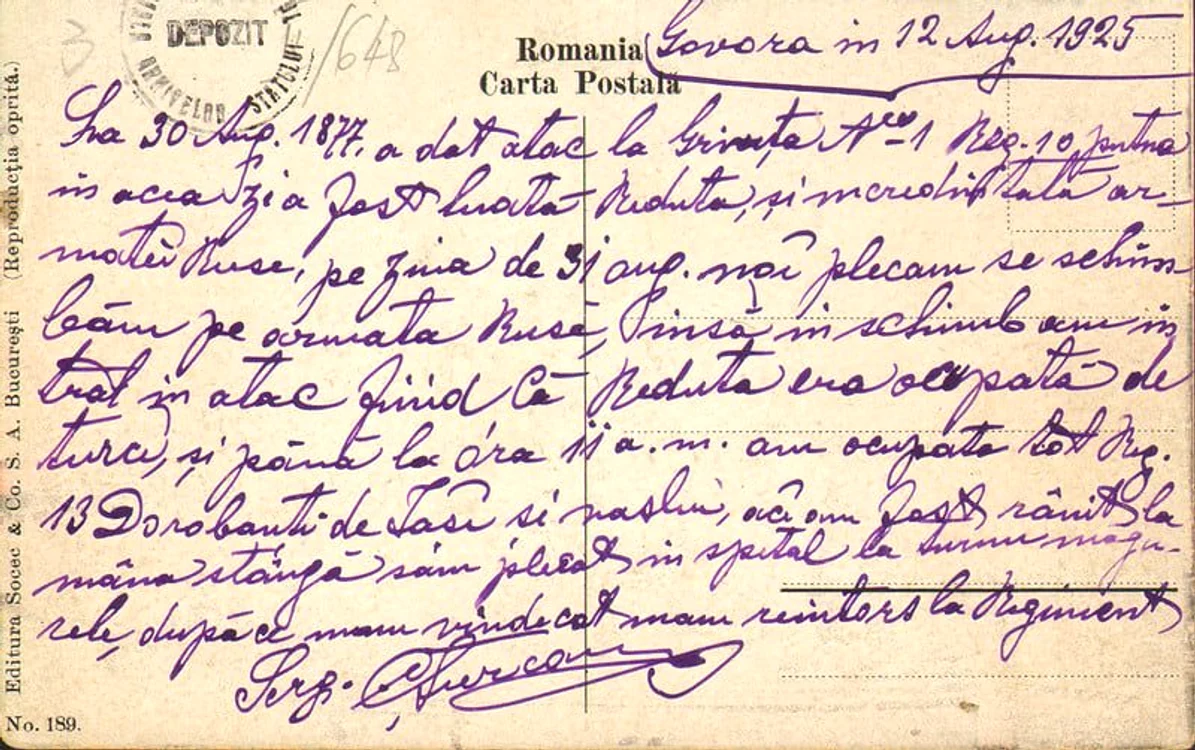 DEPOZIT
ARHIVELOR STATULUI
/648
Romania
Carta Postală
Govora in 12 Aug. 1925
La 30 Aug. 1877, a dat atac la Grivița Nco-1 Reg. 10 putna
in acea zi a fost luată Reduta, și incredințată ar-
matei Ruse, pe ziua de 31 aug. noi plecam se schim-
băm pe armata Rusă, insă in schimb am in
trat in atac fiind că Reduta era ocupată de
turci, și până la óra 11 a. m. am ocupato tot Reg.
13 Dorobanti de Iasi si vaslui, aci am fost rănit la
mâna stângă sam plecat in spital la turnu magu-
rele, după ce mam vindecat mam reintors la Regiment
Serg. C Țurcan
Editura Socec & Co. S. A. București (Reproducția oprită.)
No. 189.